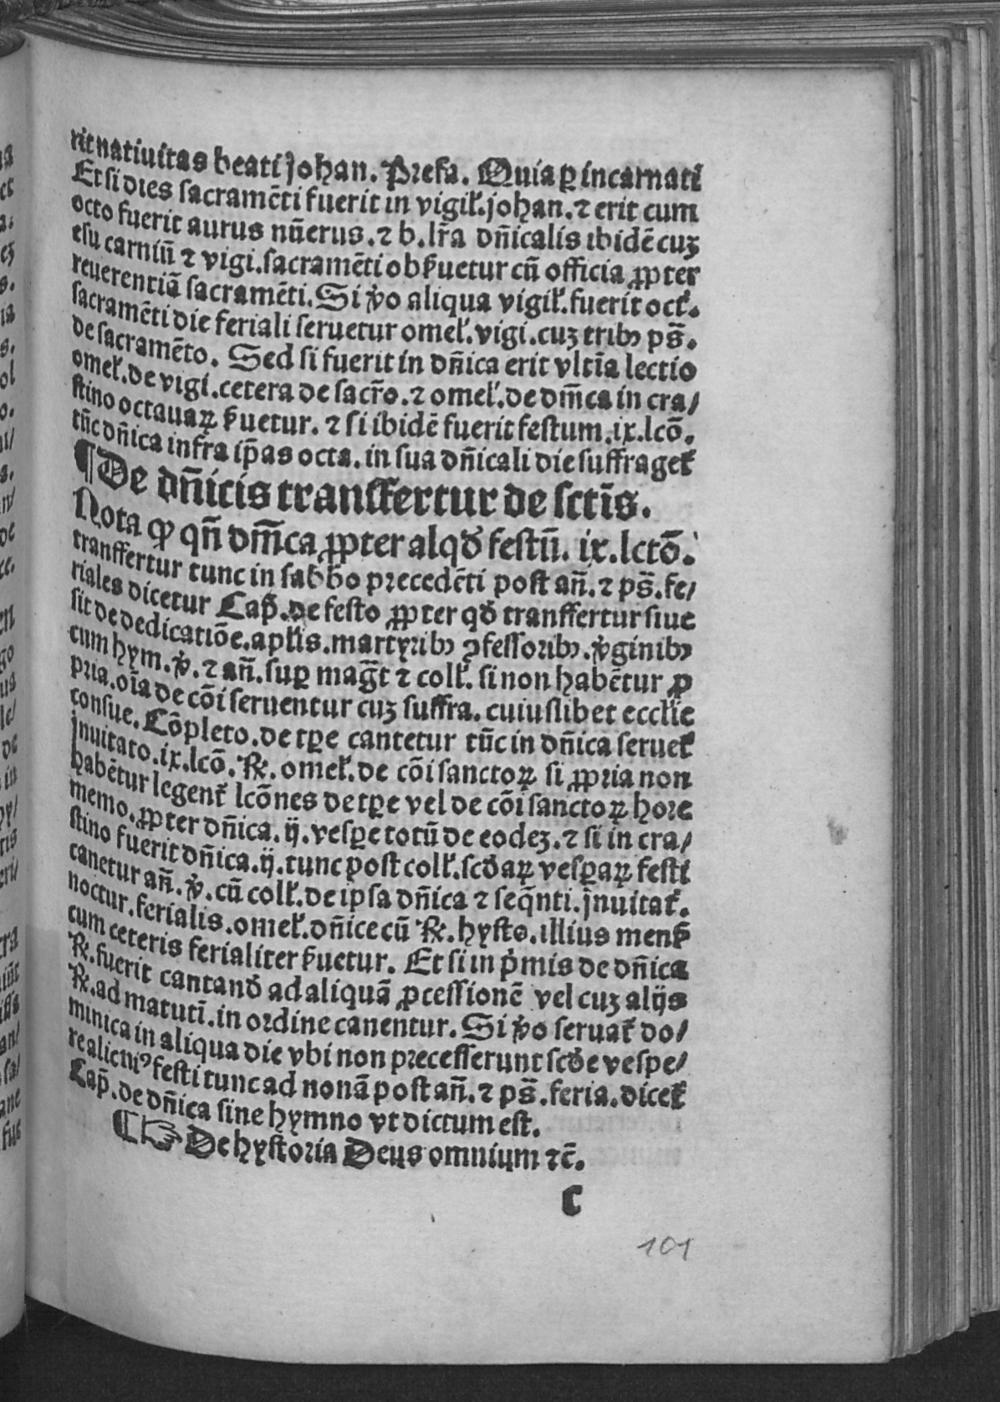 rit natiuitas beati johan. Prefa. Quia ꝑ incarnati
Et si dies sacramēti fuerit in vigiƚ. johan. ⁊ erit cum
octo fuerit aurus nūerus. ⁊ b. lr̃a dñicalis ibidē cuꝫ
esu carniū ⁊ vigi. sacramēti obẜuetur cū officia ꝓpter
reuerentiā sacramēti. Si v̊o aliqua vigiƚ. fuerit octƚ.
sacramēti die feriali seruetur omeƚ. vigi. cuꝫ tribꝰ ps̄.
de sacramēto. Sed si fuerit in dñica erit vltīa lectio
omeƚ. de vigi. cetera de sacr̃o. ⁊ omeƚ. de dm̄ca in cra/
stino octauaꝝ ẜuetur. ⁊ si ibidē fuerit festum. ix. lcō.
tūc dñica infra ip̄as octa. in sua dñicali die suffragetƚ
¶ De dñicis transffertur de sctīs.
Nota ꝙ qñ dm̄ca ꝓpter alqđ festū. ix. lctō.
transffertur tunc in sabb̄o precedēti post añ. ⁊ ps̄. fe/
riales dicetur Cap̄. de festo ꝓpter qđ transffertur siue
sit de dedicatiōe. apƚis. martyribꝰ ꝯfessoribꝰ. v̊ginibꝰ
cum hym. v̊. ⁊ añ. suꝑ mag̅t ⁊ colƚ. si non habētur ꝓ
pria. oīa de cōi seruentur cuꝫ suffra. cuiuslibet eccƚie
consue. Cōpleto. de tꝑe cantetur tūc in dñica seruetƚ
jnuitato. ix. lcō. ℟. omeƚ. de cōi sanctoꝝ si ꝓpria non
habētur legentƚ lcōnes de tꝑe vel de cōi sanctoꝝ hore
memo. ꝓpter dñica. ij. vesꝑe totū de eodeꝫ. ⁊ si in cra/
stino fuerit dñica. ij. tunc post colƚ. scđaꝝ vesꝑaꝝ festi
canetur añ. v̊. cū colƚ. de ipsa dñica ⁊ seq̄nti. jnuitatƚ.
noctur. ferialis. omeƚ. dñice cū ℟. hysto. illius menẜ
cum ceteris ferialiter ẜuetur. Et si in p̊mis de dñica
℟. fuerit cantanđ ad aliquā ꝓcessionē vel cuꝫ alijs
℟. ad matutī. in ordine canentur. Si v̊o seruatƚ do/
minica in aliqua die vbi non precesserunt scđe vespe/
re alicuiꝰ festi tunc ad nonā post añ. ⁊ ps̄. feria. dicetƚ
Cap̄. de dñica sine hymno vt dictum est.
¶ ☞ De hystoria Deus omnium ⁊c̄.
C
101